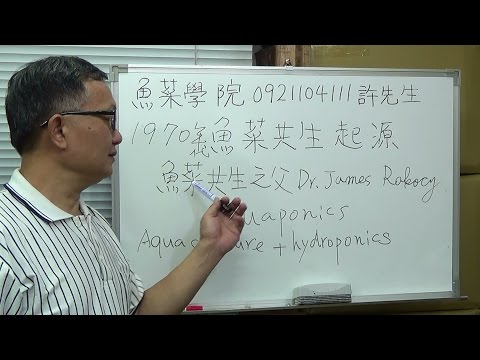 魚菜學院 0921104111 許先生
1970年代魚菜共生起源
魚菜共生之父 Dr. James Rakocy
+ hydroponics